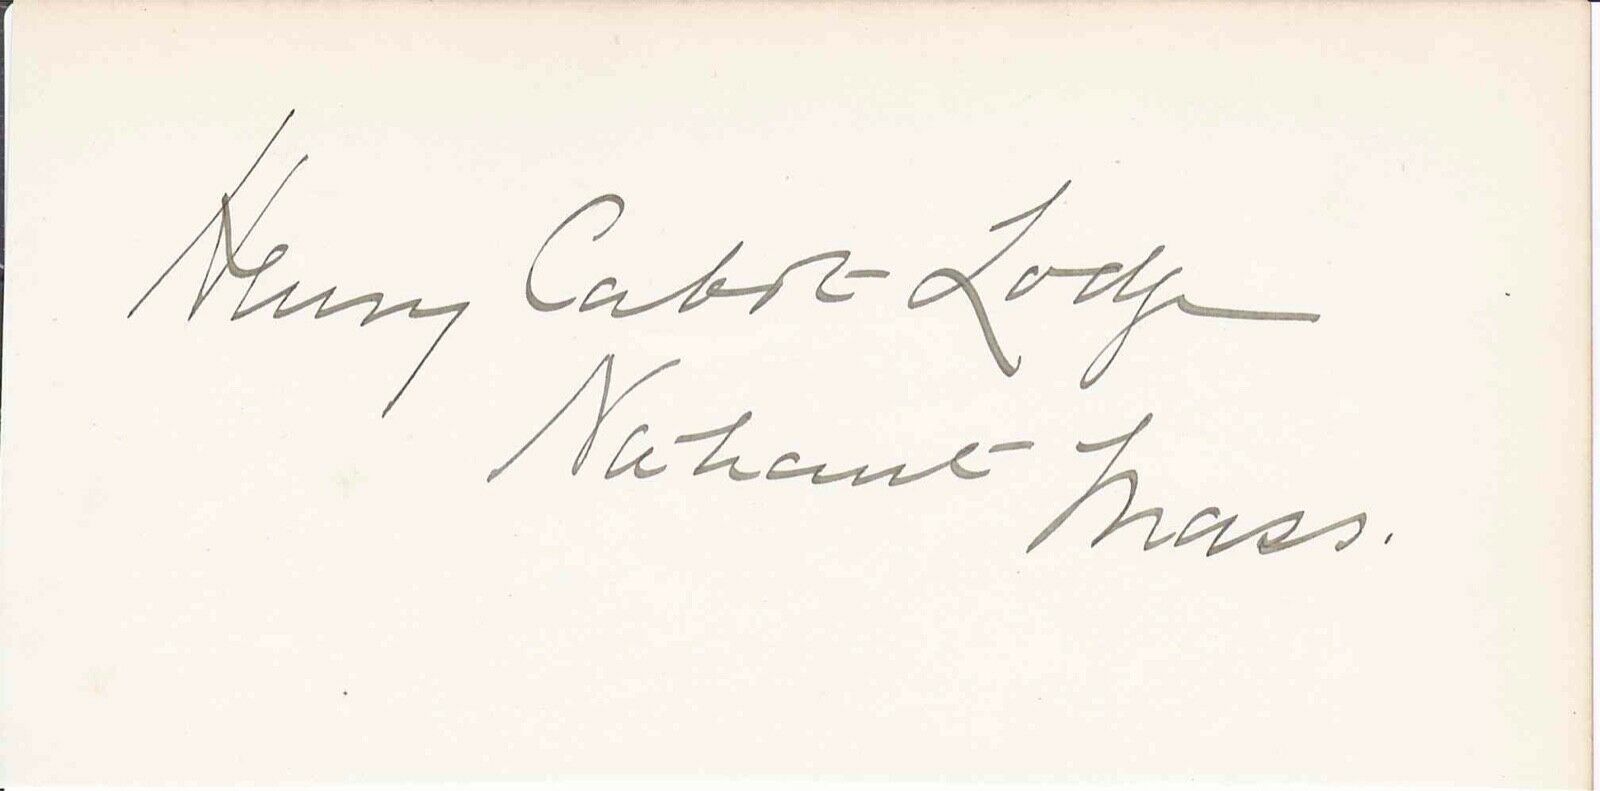 Henry Cabot Lodge
Nahant Mass.